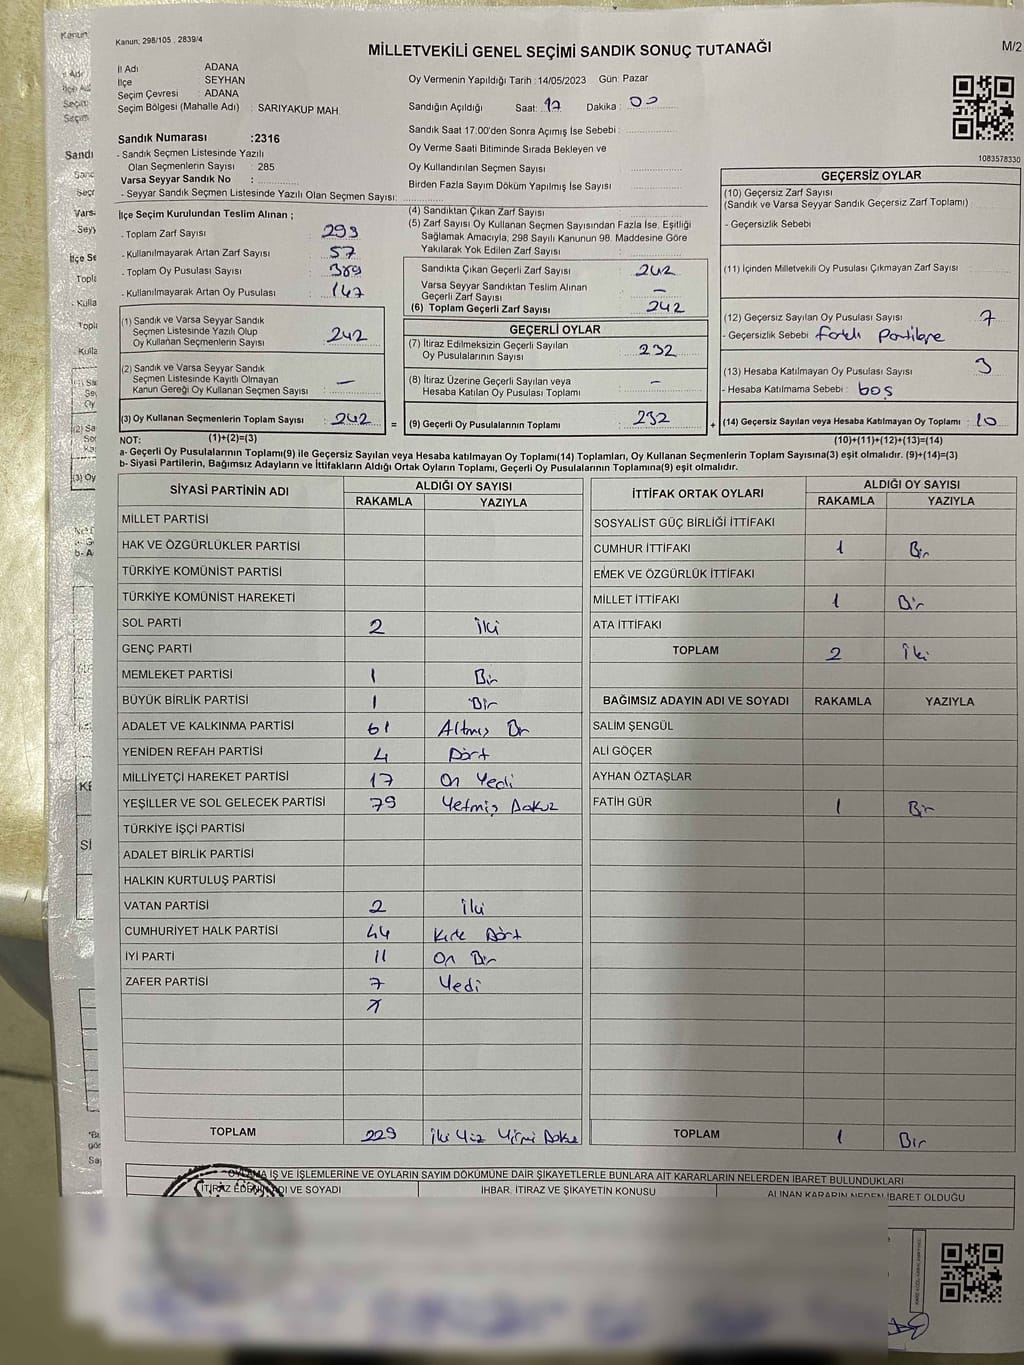 Kanun: 298/105 , 2839/4
MİLLETVEKİLİ GENEL SEÇİMİ SANDIK SONUÇ TUTANAĞI
M/2
İl Adı ADANA
İlçe SEYHAN
Seçim Çevresi : ADANA
Seçim Bölgesi (Mahalle Adı) : SARIYAKUP MAH.
Oy Vermenin Yapıldığı Tarih : 14/05/2023 Gün: Pazar
Sandığın Açıldığı Saat: 17 Dakika : 00
Sandık Saat 17:00'den Sonra Açımış İse Sebebi :
Oy Verme Saati Bitiminda Sırada Bekleyen ve
Oy Kullandırılan Seçmen Sayısı
Birden Fazla Sayım Döküm Yapılmış İse Sayısı
1083578330
Sandık Numarası :2316
- Sandık Seçmen Listesinde Yazılı
Olan Seçmenlerin Sayısı : 285
Varsa Seyyar Sandık No :
- Seyyar Sandık Seçmen Listesinde Yazılı Olan Seçmen Sayısı:
İlçe Seçim Kurulundan Teslim Alınan ;
- Toplam Zarf Sayısı 299
- Kullanılmayarak Artan Zarf Sayısı 57
- Toplam Oy Pusulası Sayısı 389
- Kullanılmayarak Artan Oy Pusulası 147
(1) Sandık ve Varsa Seyyar Sandık
Seçmen Listesinde Yazılı Olup
Oy Kullanan Seçmenlerin Sayısı 242
(2) Sandık ve Varsa Seyyar Sandık
Seçmen Listesinde Kayıtlı Olmayan
Kanun Gereği Oy Kullanan Seçmen Sayısı : —
(3) Oy Kullanan Seçmenlerin Toplam Sayısı : 242 =
(4) Sandıktan Çıkan Zarf Sayısı
(5) Zarf Sayısı Oy Kullanan Seçmen Sayısından Fazla İse, Eşitliği
Sağlamak Amacıyla, 298 Sayılı Kanunun 98. Maddesine Göre
Yakılarak Yok Edilen Zarf Sayısı :
Sandıkta Çıkan Geçerli Zarf Sayısı : 242
Varsa Seyyar Sandıktan Teslim Alınan
Geçerli Zarf Sayısı : —
(6) Toplam Geçerli Zarf Sayısı : 242
GEÇERLİ OYLAR
(7) İtiraz Edilmeksizin Geçerli Sayılan
Oy Pusulalarının Sayısı : 232
(8) İtiraz Üzerine Geçerli Sayılan veya
Hesaba Katılan Oy Pusulası Toplamı : —
(9) Geçerli Oy Pusulalarının Toplamı : 232 +
GEÇERSİZ OYLAR
(10) Geçersiz Zarf Sayısı
(Sandık ve Varsa Seyyar Sandık Geçersiz Zarf Toplamı)
- Geçersizlik Sebebi
(11) İçinden Milletvekili Oy Pusulası Çıkmayan Zarf Sayısı
(12) Geçersiz Sayılan Oy Pusulası Sayısı : 7
- Geçersizlik Sebebi : farklı Partilere
(13) Hesaba Katılmayan Oy Pusulası Sayısı : 3
- Hesaba Katılmama Sebebi : boş
(14) Geçersiz Sayılan veya Hesaba Katılmayan Oy Toplamı : 10
NOT: (1)+(2)=(3) (10)+(11)+(12)+(13)=(14)
a- Geçerli Oy Pusulalarının Toplamı(9) ile Geçersiz Sayılan veya Hesaba katılmayan Oy Toplamı(14) Toplamları, Oy Kullanan Seçmenlerin Toplam Sayısına(3) eşit olmalıdır. (9)+(14)=(3)
b- Siyasi Partilerin, Bağımsız Adayların ve İttifakların Aldığı Ortak Oyların Toplamı, Geçerli Oy Pusulalarının Toplamına(9) eşit olmalıdır.
SİYASİ PARTİNİN ADI ALDIĞI OY SAYISI
RAKAMLA YAZIYLA
MİLLET PARTİSİ
HAK VE ÖZGÜRLÜKLER PARTİSİ
TÜRKİYE KOMÜNİST PARTİSİ
TÜRKİYE KOMÜNİST HAREKETİ
SOL PARTİ 2 İki
GENÇ PARTİ
MEMLEKET PARTİSİ 1 Bir
BÜYÜK BİRLİK PARTİSİ 1 Bir
ADALET VE KALKINMA PARTİSİ 61 Altmış Bir
YENİDEN REFAH PARTİSİ 4 Dört
MİLLİYETÇİ HAREKET PARTİSİ 17 On Yedi
YEŞİLLER VE SOL GELECEK PARTİSİ 79 Yetmiş Dokuz
TÜRKİYE İŞÇİ PARTİSİ
ADALET BİRLİK PARTİSİ
HALKIN KURTULUŞ PARTİSİ
VATAN PARTİSİ 2 İki
CUMHURİYET HALK PARTİSİ 44 Kırk Dört
İYİ PARTİ 11 On Bir
ZAFER PARTİSİ 7 Yedi
TOPLAM 229 İki Yüz Yirmi Dokuz
İTTİFAK ORTAK OYLARI ALDIĞI OY SAYISI
RAKAMLA YAZIYLA
SOSYALİST GÜÇ BİRLİĞİ İTTİFAKI
CUMHUR İTTİFAKI 1 Bir
EMEK VE ÖZGÜRLÜK İTTİFAKI
MİLLET İTTİFAKI 1 Bir
ATA İTTİFAKI
TOPLAM 2 İki
BAĞIMSIZ ADAYIN ADI VE SOYADI RAKAMLA YAZIYLA
SALİM ŞENGÜL
ALİ GÖÇER
AYHAN ÖZTAŞLAR
FATİH GÜR 1 Bir
TOPLAM 1 Bir
OYLAMA İŞ VE İŞLEMLERİNE VE OYLARIN SAYIM DÖKÜMÜNE DAİR ŞİKAYETLERLE BUNLARA AİT KARARLARIN NELERDEN İBARET BULUNDUKLARI
İTİRAZ EDENİN ADI VE SOYADI İHBAR, İTİRAZ VE ŞİKAYETİN KONUSU ALINAN KARARIN NEDEN İBARET OLDUĞU